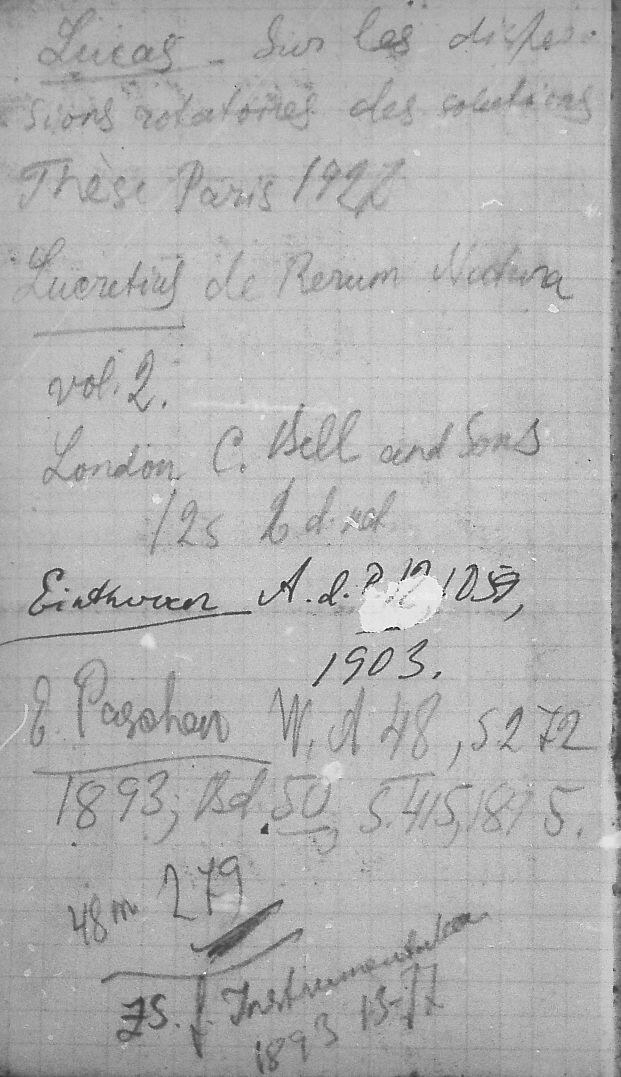 Lucas - Sur les disper-
sions rotatoires des solutions
Thèse Paris 1927
Lucretius de Rerum Natura
vol. 2.
London C. Bell and Sons
12s
Einthoven A. d. P. 12, 1059,
1903.
E Paschen W. A 48, S 272
1893; Bd. 50, S. 415, 1895.
48 m 279
ZS. f Instrumentenk
1893 13-17